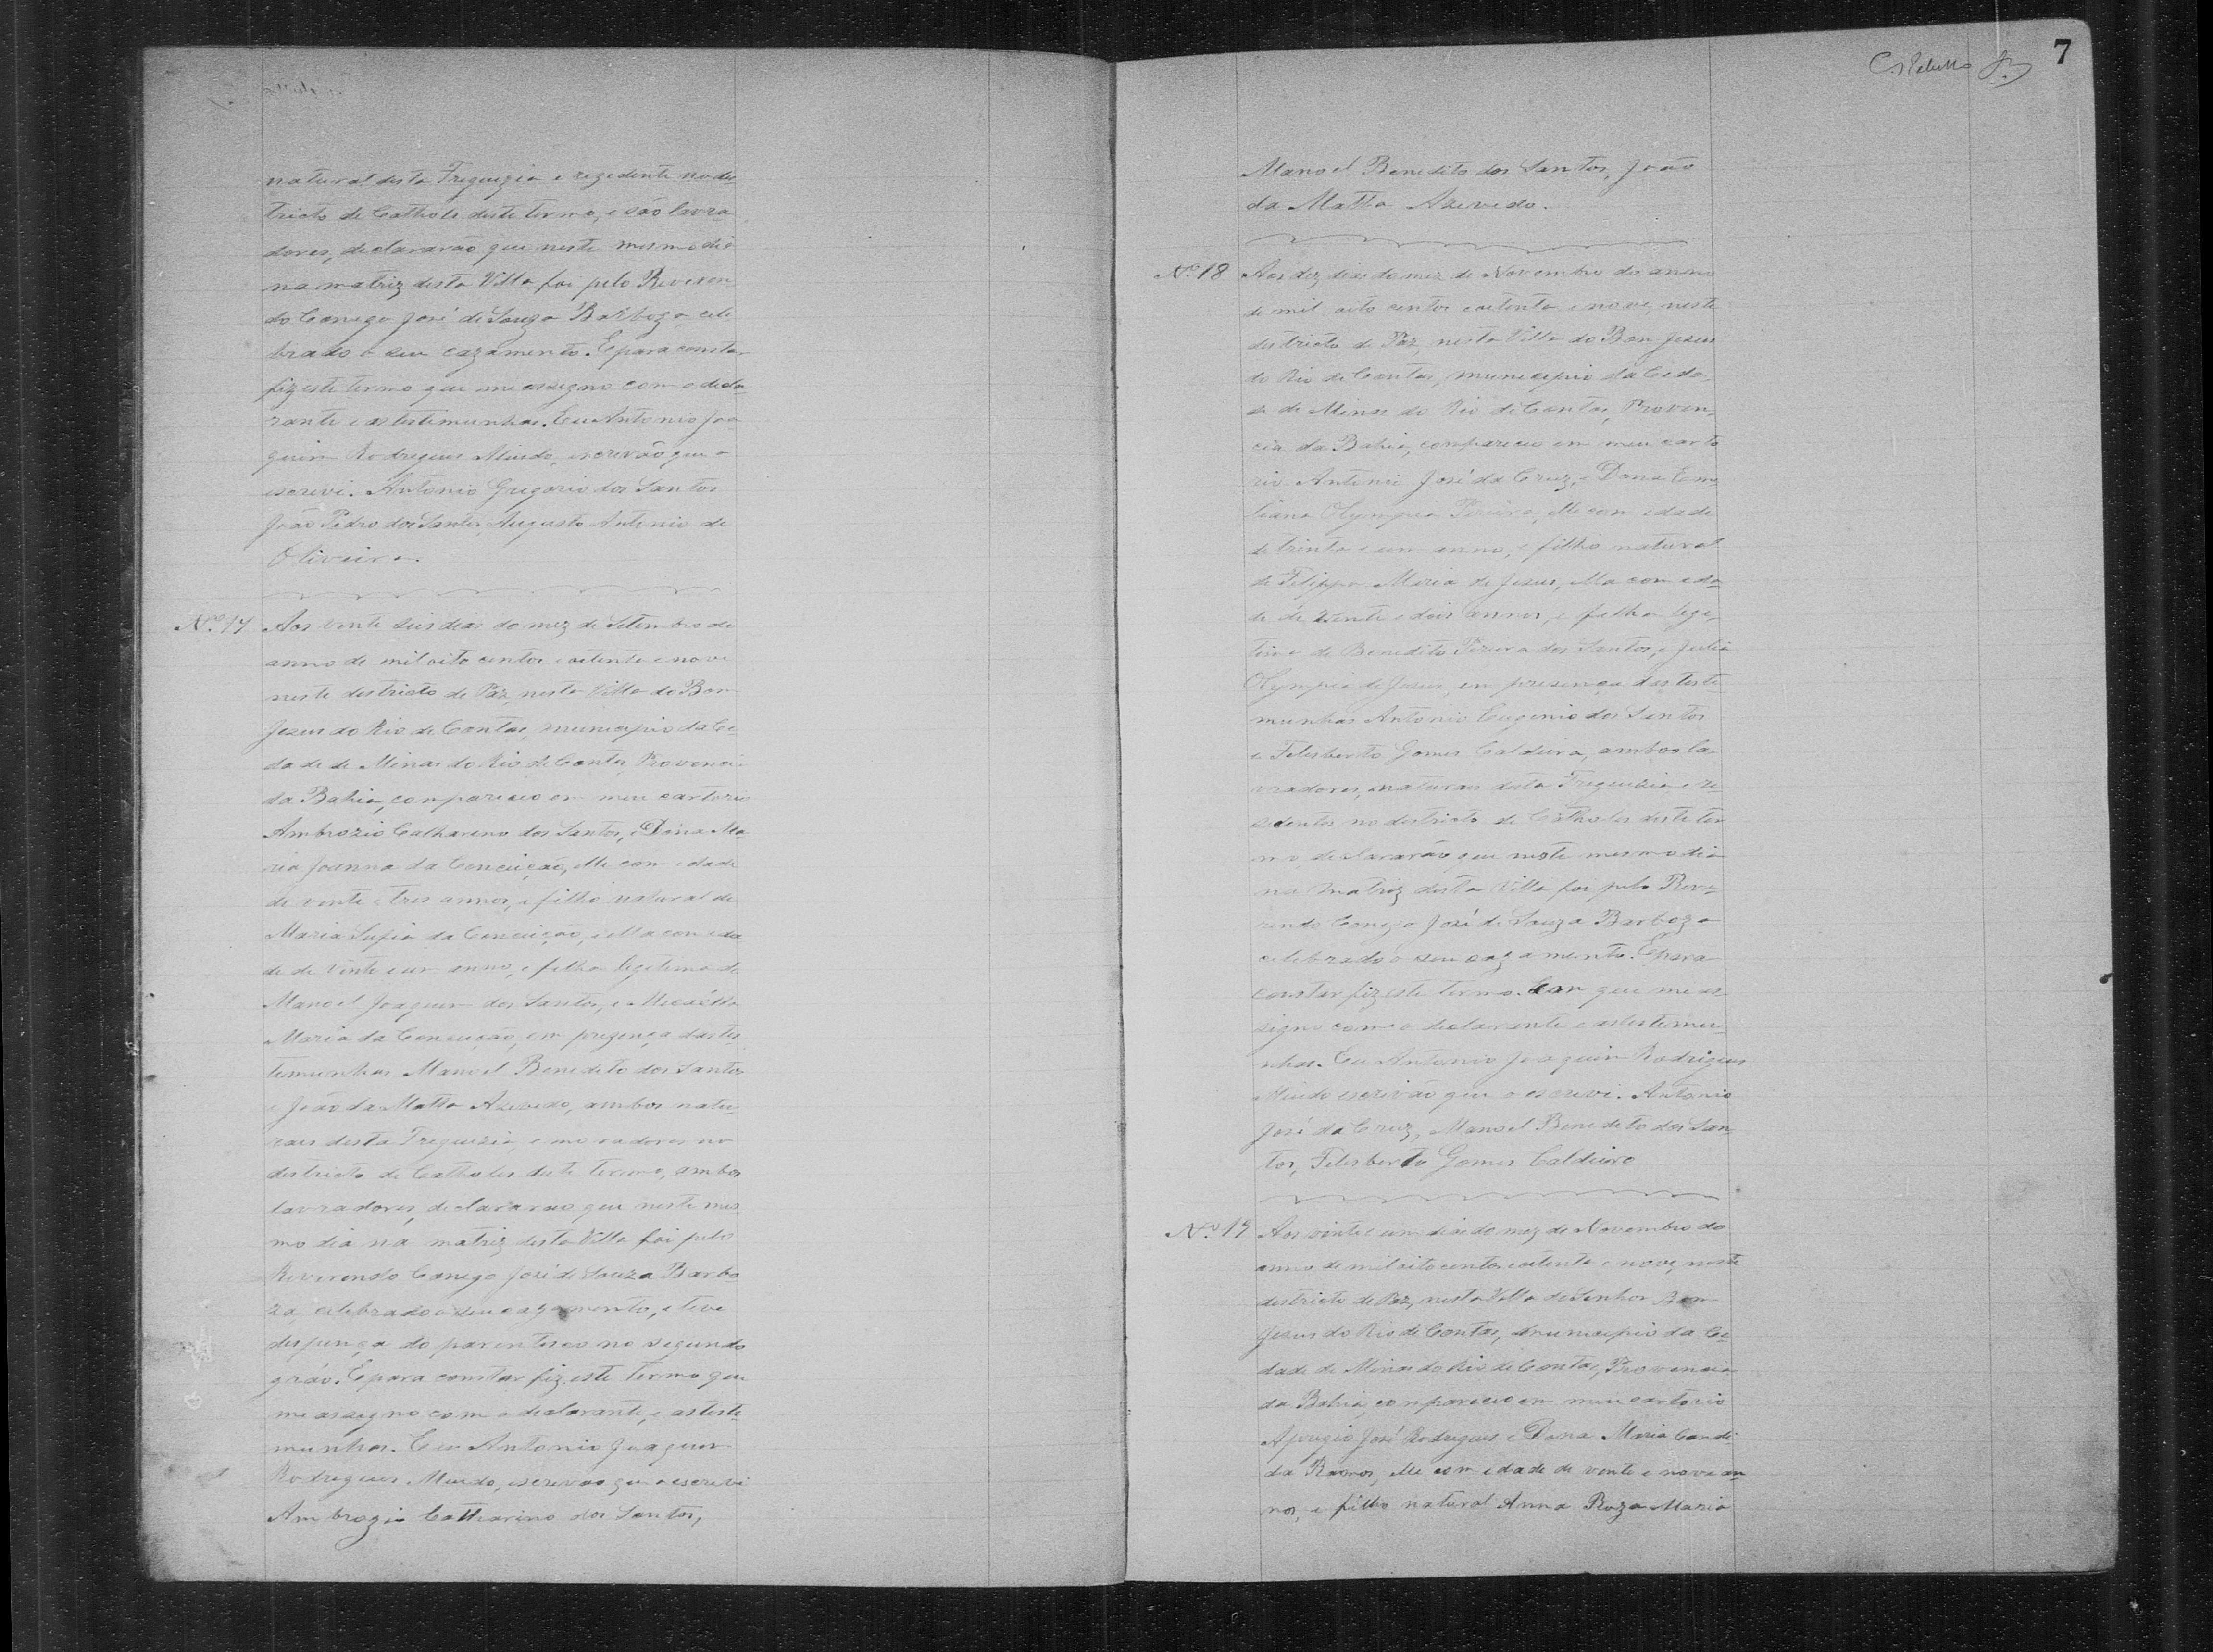 7
natural desta Freguezia e rezedente no des
tricto de Cathole deste termo, e são lavra
dores, declararão que neste mesmo dia
na matriz desta Villa foi pelo Reveren
do Conego José de Souza Barboza cele
brado o seu cazamento. E para constar
fiz este termo que me assigno com o decla
rante e as testimunhas. Eu Antonio Joa
quim Rodrigues escrivão que o
escrevi. Antonio Gregorio dos Santos
João Pedro dos Santos, Augusto Antonio de
Oliveira.
Nº 17 Aos vinte seis dias do mez de Setembro do
anno de mil oito centos e oitenta e nove
neste destricto de Paz, nesta Villa do Bom
Jezus do Rio de Contas, municipio da Ci
dade de Minas do Rio de Contas, Provincia
da Bahia, compareceo em meu cartorio
Ambrozio Catharino dos Santos, e Dona Ma
ria Joanna da Conceição, elle com idade
de vinte e tres annos, e filho natural de
Maria da Conceição, e ella com ida
de de vinte e um anno, e filha legitima de
Manoel Joaquim dos Santos, e Micaélla
Maria da Conceição, em prezença das tes
temunhas Manoel Benedito dos Santos
e João da Matta Azevedo, ambos natu
raes desta Freguezia, e moradores no
destricto de Catholes deste termo, ambos
lavradores, declararao que neste mes
mo dia na matriz desta Villa foi pelo
Reverendo Conego José de Souza Barbo
za, celebrado o seu cazamento, e teve
despença do parentesco no segundo
gráo. E para constar fiz este termo que
me assigno com o declarante, e as teste
munhas. Eu Antonio Joaquim
Rodrigues escrivão que o escrevi
Ambrozio Catharino dos Santos,
Manoel Benedito dos Santos, João
da Matta Azevedo.
Nº 18 Aos dez dias do mez de Novembro do anno
de mil oito centos e oitenta e nove, neste
destricto de Paz, nesta Villa do Bom Jezus
do Rio de Contas, municipio da Cida
de de Minas do Rio de Contas, Provin
cia da Bahia, compareceo em meu carto
rio Antonio José da Cruz, e Dona Emi
liana Olympia Pereira, elle com idade
de trinta e um anno, e filho natural
de Filippa Maria de Jesus, ella com ida
de de vinte e dois annos, e filha legi
tima de Benedito Pereira dos Santos, e Julia
Olympia de Jesus, em presença das teste
munhas Antonio Eugenio dos Santos
e Felisberto Gomes Caldeira, ambos la
vradores, e naturaes desta Freguezia e re
zidentes no destricto de Catholes deste ter
mo, declararão que neste mesmo dia
na matriz desta Villa foi pelo Reve
rendo Conego José de Souza Barboza
celebrado o seu cazamento. E para
constar fiz este termo. Com que me as
signo com o declarante e as testemu
nhas. Eu Antonio Joaquim Rodrigues
escrivão que o escrevi. Antonio
José da Cruz, Manoel Benedito dos San
tos, Felisberto Gomes Caldeira
Nº 19 Aos vinte e um dias do mez de Novembro do
anno de mil oito centos e oitenta e nove, neste
destricto de Paz, nesta Villa do Senhor Bom
Jesus do Rio de Contas, municipio da Ci
dade de Minas do Rio de Contas, Provincia
da Bahia, compareceo em meu cartorio
Aprigio José Rodrigues e Dona Maria Candi
da Ramos, elle com idade de vinte e nove an
nos, e filho natural Anna Roza Maria